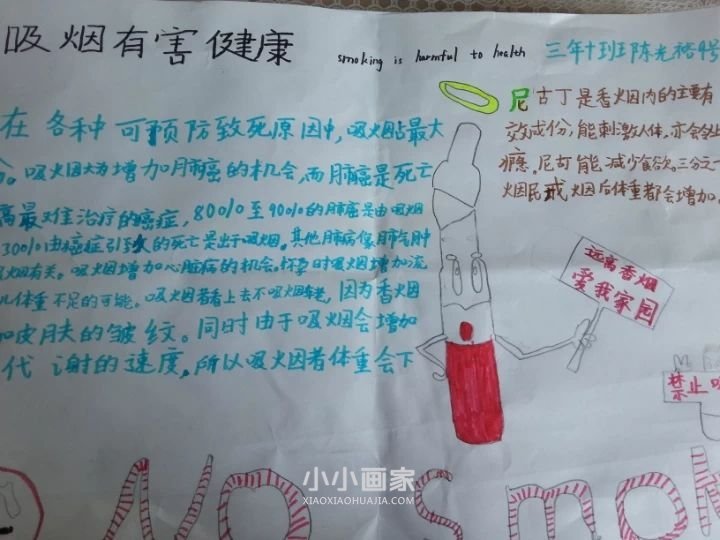 吸烟有害健康 smoking is harmful to health 三年十班 陈光裕 4号
在各种可预防致死原因中,吸烟占最大
分。吸烟大为增加肺癌的机会,而肺癌是死亡
高最难治疗的癌症,80%至90%的肺癌是由吸烟
30%由癌症引致的死亡是出于吸烟。其他肺病像肺气肿
吸烟有关。吸烟增加心脏病的机会。怀孕时吸烟增加流
儿体重不足的可能。吸烟者看上去不吸烟年老,因为香烟
加皮肤的皱纹。同时由于吸烟会增加
代谢的速度,所以吸烟者体重会下
尼古丁是香烟内的主要有
效成份,能刺激人体,亦会
瘾。尼古丁能减少食欲。三分之一
烟民戒烟后体重都会增加。
远离香烟
爱我家园
禁止吸
NO smok
小小画家
XIAOXIAOHUAJIA.COM